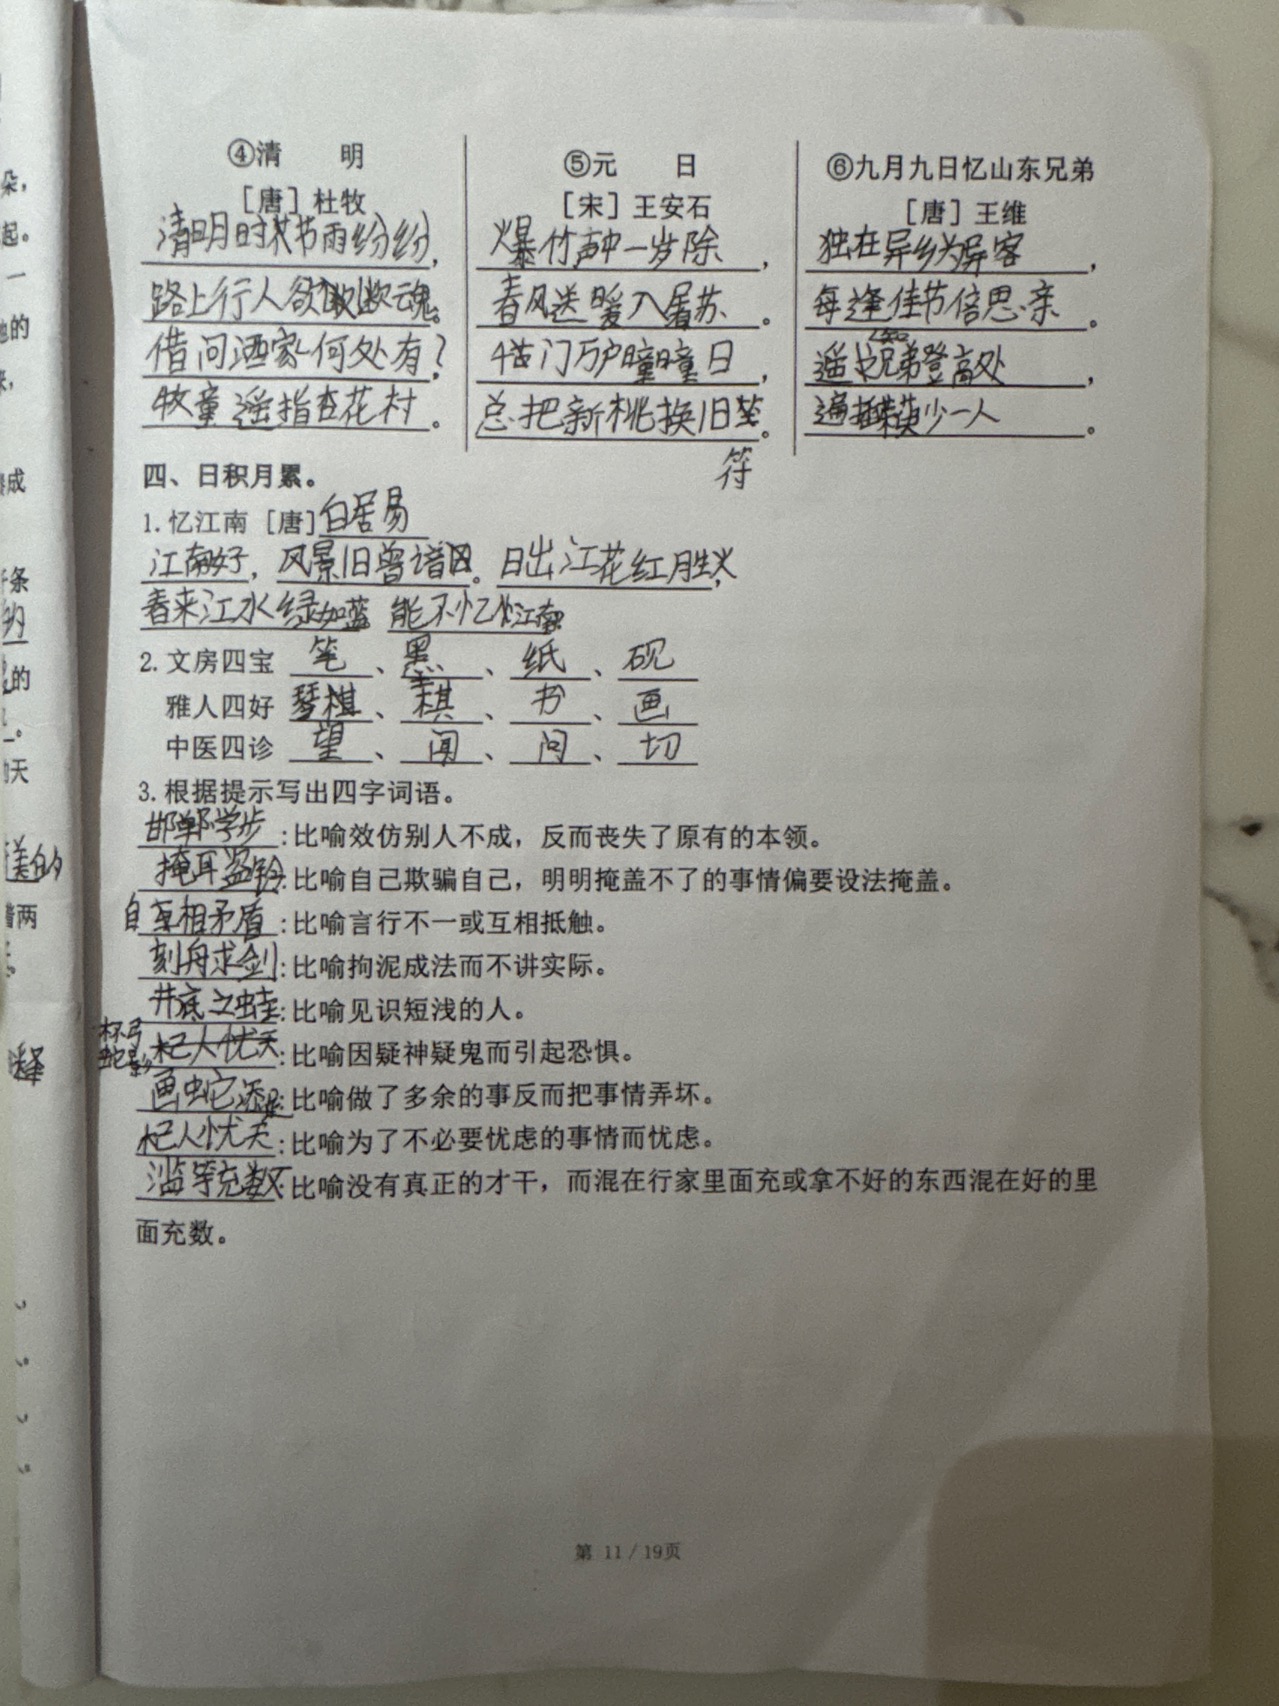 ④清 明
[唐]杜牧
清明时节雨纷纷,
路上行人欲断魂。
借问酒家何处有?
牧童遥指杏花村。
⑤元 日
[宋]王安石
爆竹声中一岁除,
春风送暖入屠苏。
门万户曈曈日,
总把新桃换旧
符
⑥九月九日忆山东兄弟
[唐]王维
独在异乡为异客,
每逢佳节倍思亲。
遥知兄弟登高处,
遍插茱萸少一人。
四、日积月累。
1.忆江南 [唐]白居易
江南好,风景旧曾谙。日出江花红胜火,
春来江水绿如蓝 能不忆江南
2.文房四宝 笔、墨、纸、砚
雅人四好 琴、棋、书、画
中医四诊 望、闻、问、切
3.根据提示写出四字词语。
邯郸学步:比喻效仿别人不成,反而丧失了原有的本领。
掩耳盗铃:比喻自己欺骗自己,明明掩盖不了的事情偏要设法掩盖。
自相矛盾:比喻言行不一或互相抵触。
刻舟求剑:比喻拘泥成法而不讲实际。
井底之蛙:比喻见识短浅的人。
杯弓蛇影 杞人忧天:比喻因疑神疑鬼而引起恐惧。
画蛇添足:比喻做了多余的事反而把事情弄坏。
杞人忧天:比喻为了不必要忧虑的事情而忧虑。
滥竽充数:比喻没有真正的才干,而混在行家里面充或拿不好的东西混在好的里
面充数。
第 11 / 19页